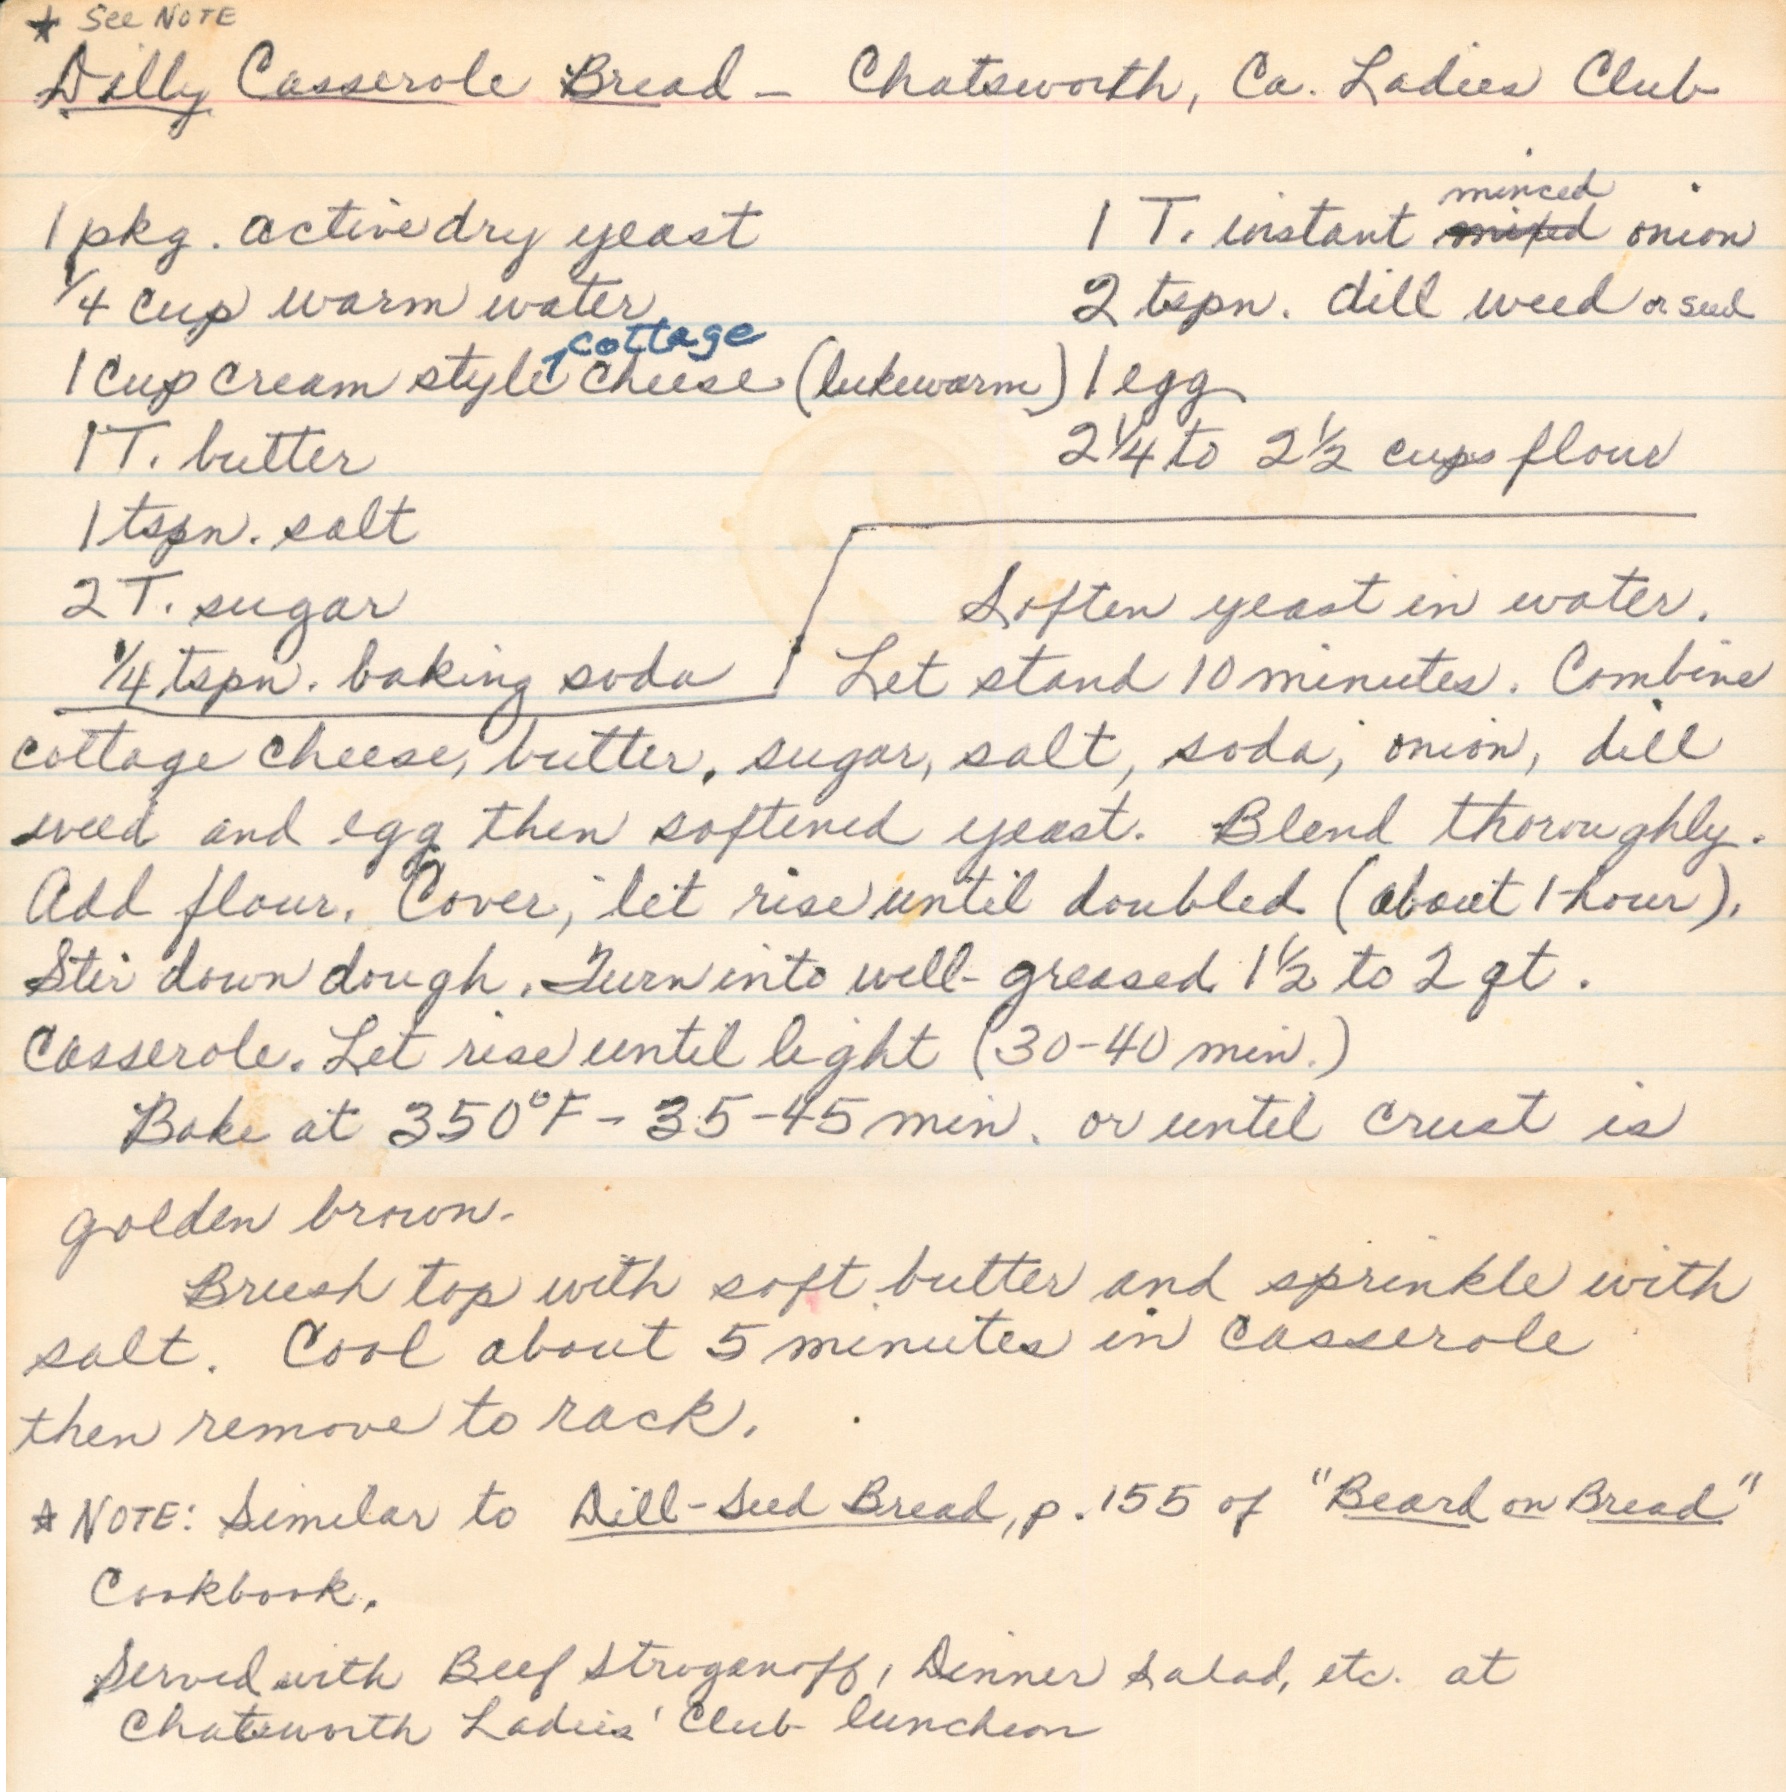 * See NOTE
Dilly Casserole Bread - Chatsworth, Ca. Ladies Club
1 pkg. active dry yeast
1/4 cup warm water
1 cup cream style cottage cheese (lukewarm)
1 T. butter
1 tspn. salt
2 T. sugar
1/4 tspn. baking soda
1 T. instant minced onion
2 tspn. dill weed or seed
1 egg
2 1/4 to 2 1/2 cups flour
Soften yeast in water.
Let stand 10 minutes. Combine
cottage cheese, butter, sugar, salt, soda, onion, dill
weed and egg then softened yeast. Blend thoroughly.
Add flour. Cover, let rise until doubled (about 1 hour).
Stir down dough. Turn into well-greased 1 1/2 to 2 qt.
Casserole. Let rise until light (30-40 min.)
Bake at 350°F - 35-45 min. or until crust is
golden brown.
Brush top with soft butter and sprinkle with
salt. Cool about 5 minutes in casserole
then remove to rack.
* NOTE: Similar to Dill-Seed Bread, p. 155 of "Beard on Bread"
Cookbook.
Served with Beef Stroganoff, Dinner Salad, etc. at
Chatsworth Ladies' Club luncheon